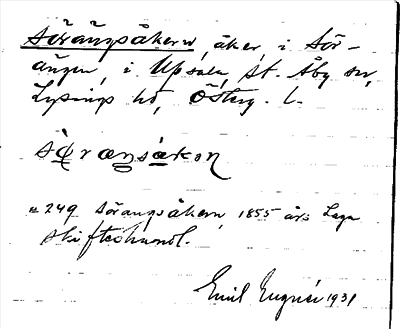 Sörängsåkern, åker i Sör-
ängen, i Upsala, St. Åby sn,
Lysings hd, Österg. l.
249 Sörängsåkern, 1855 års Laga
skifteshandl.
Emil Eugnér 1931